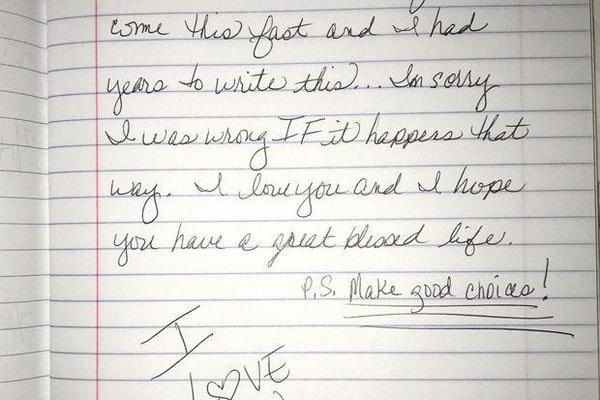 come this fast and I had
years to write this... Im sorry
I was wrong IF it happens that
way. I love you and I hope
you have a great blessed life.
P.S. Make good choices!
I
L♡VE